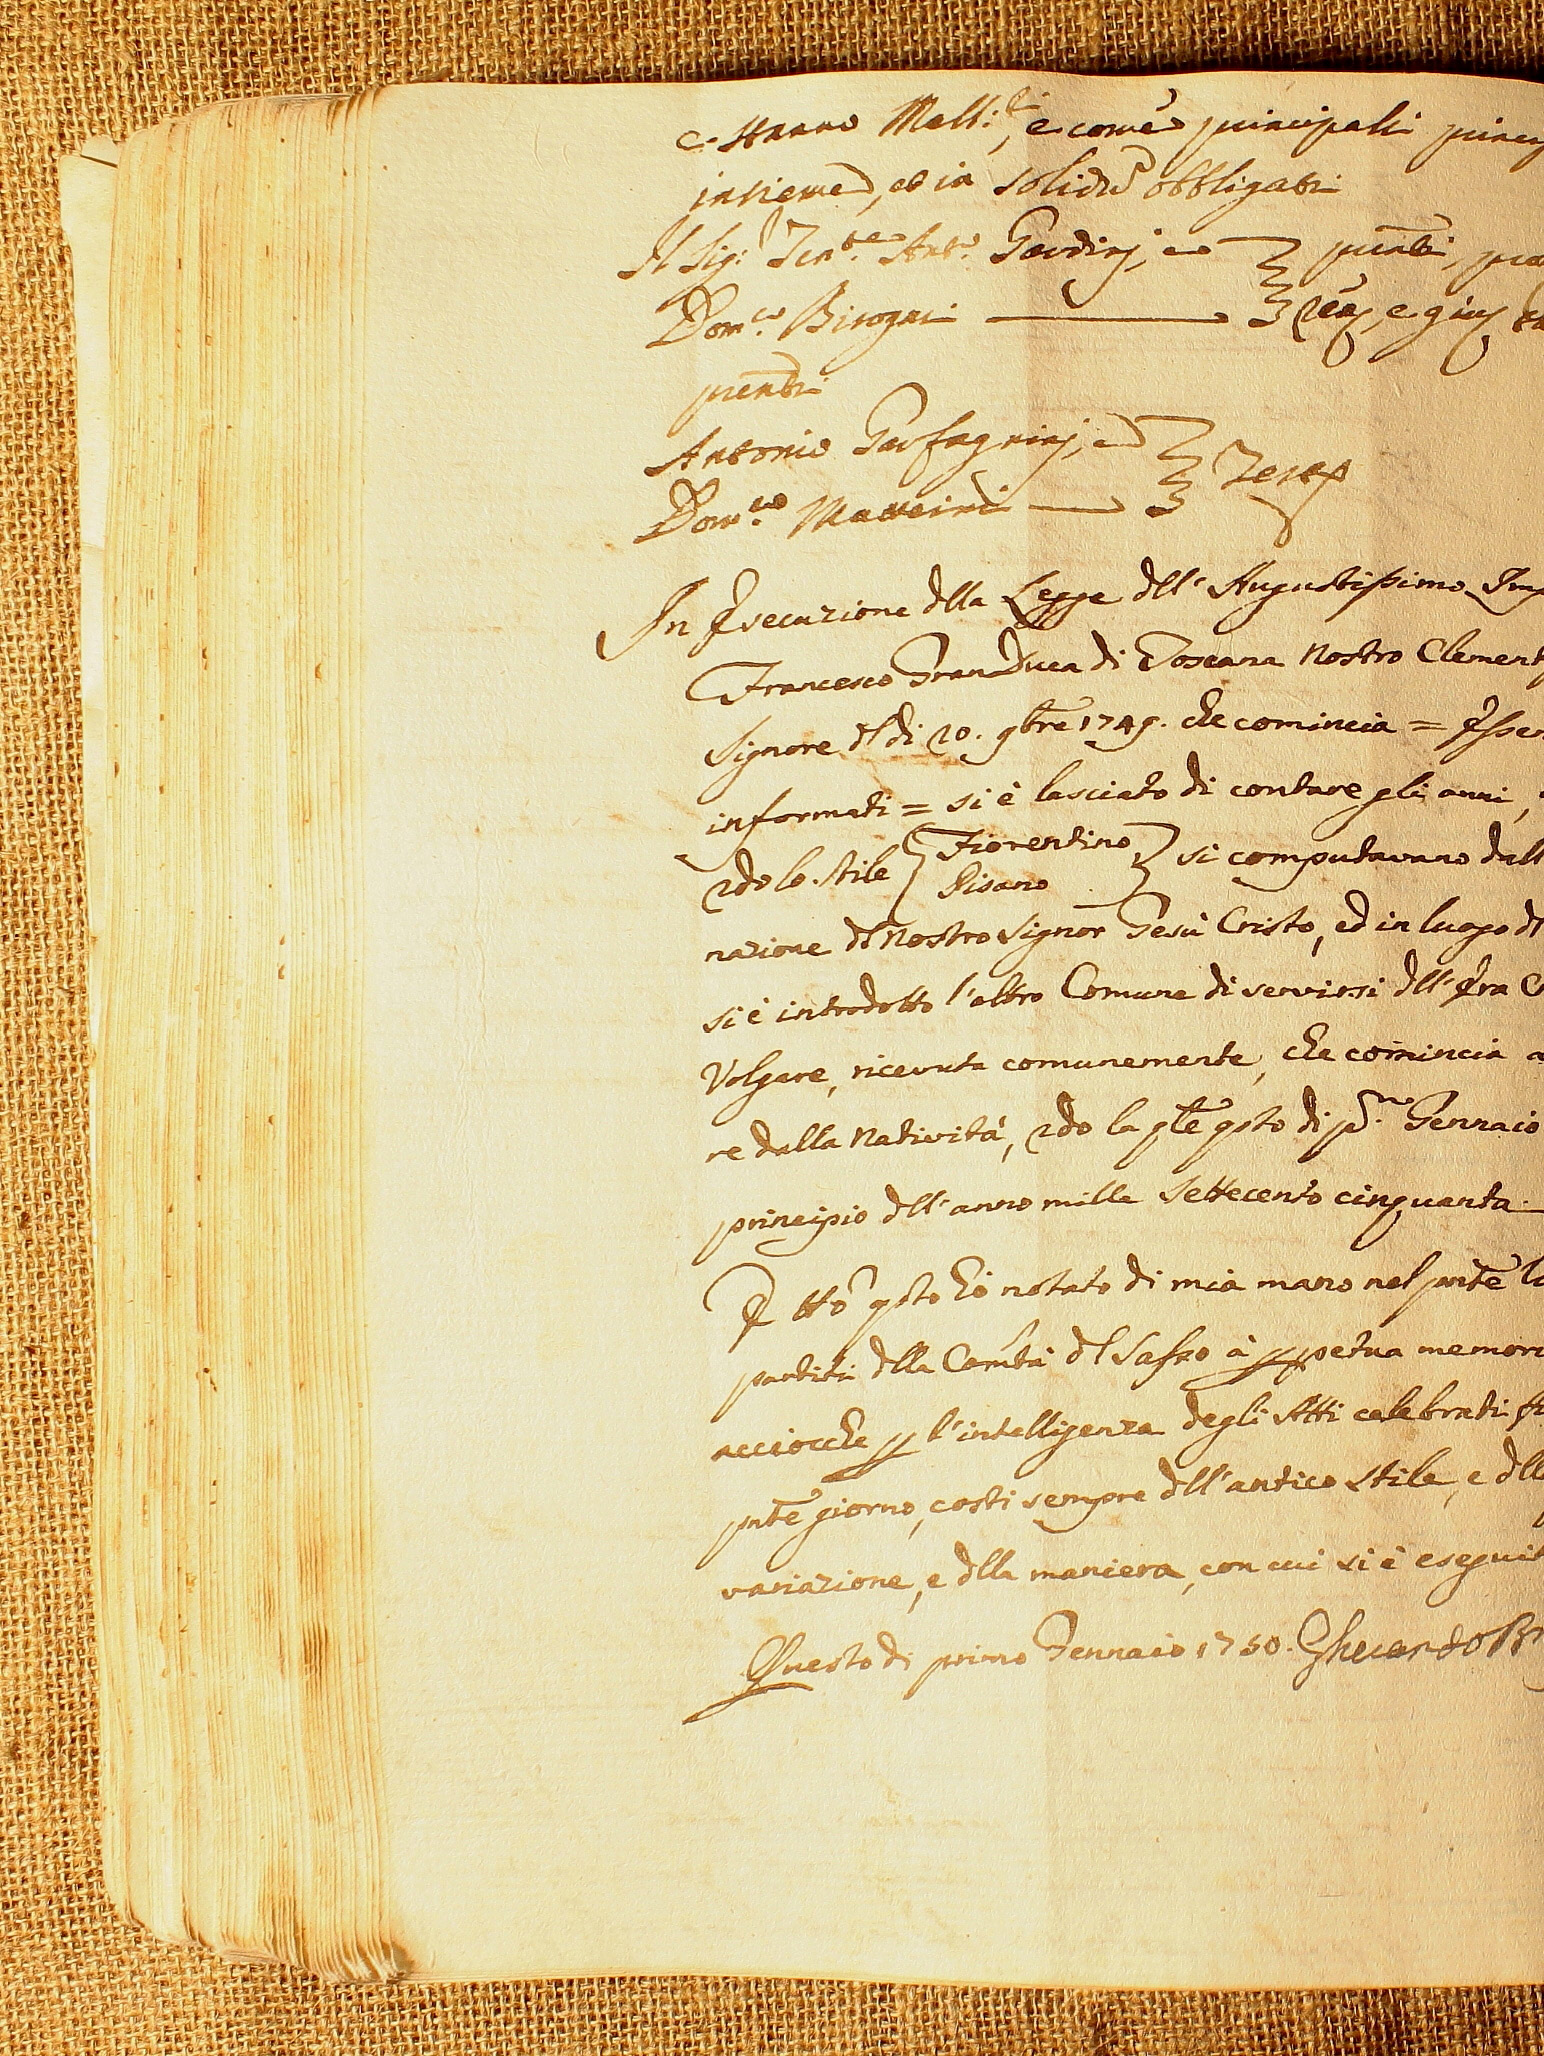 e come principali
insieme, et in solidũ obbligati
Il Sig: Ten.te Ant.o
Dom.co Bisogni
Antonio Garfagnini, e
Dom.co Matteini
In Esecuzione dlla Legge dll' Augustissimo Imp
Francesco GranDuca di Toscana Nostro Clement
Signore dl dì 20. 9bre 1749. che comincia = Essen
informati = si è lasciato di contare gli anni,
2do lo stile { Fiorentino Pisano } si computavano dall
nazione dl Nostro Signor Gesù Cristo, ed in luogo d
si è introdotto l'altro Comune di servirsi dll' Era C
Volgare, ricevuta comunemente, che comincia a
re dalla Natività, 2do la qle qsto dì p.mo Gennaio
principio dll' anno mille Settecento cinquanta.
P tto qsto hò notato di mia mano nel pnte L
partiti dlla Comtà dl Sasso à ppetua memor
acciocche p l'intelligenza degli Atti celebrati
pnte giorno, costi sempre dll' antico stile, e dll
variazione, e dlla maniera, con cui si è eseguit
Questo dì primo Gennaio 1750. Gherardo